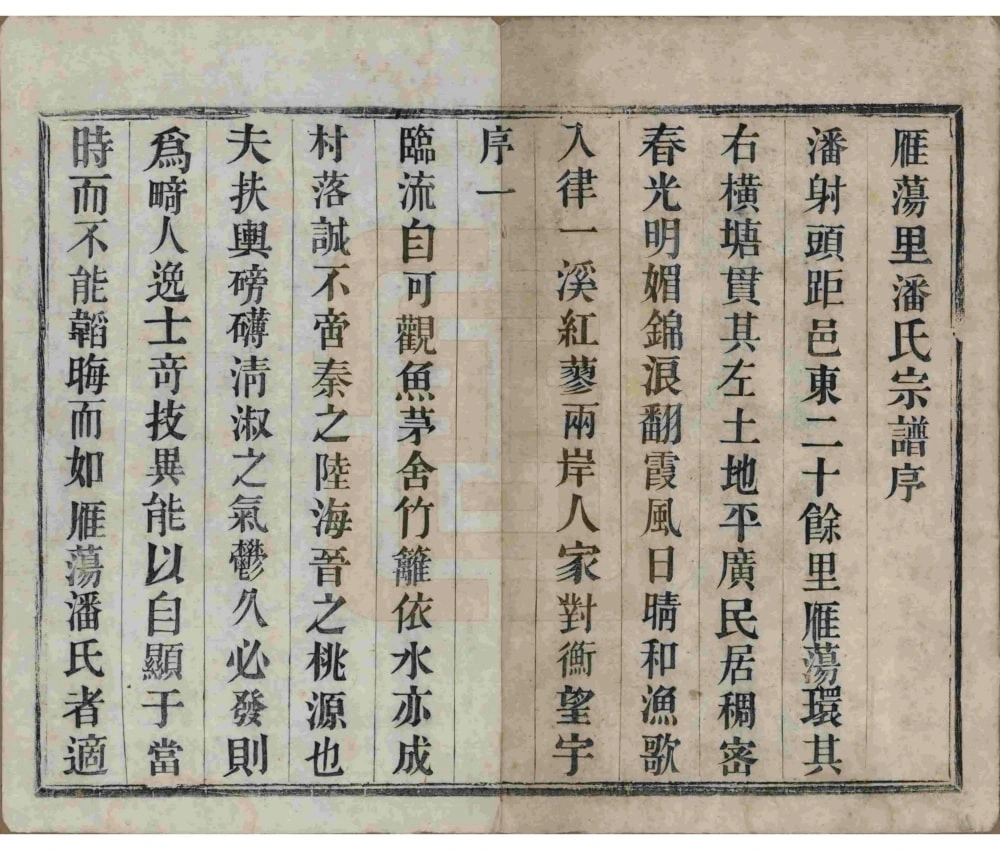 雁蕩里潘氏宗譜序
潘射頭距邑東二十餘里雁蕩環其
右橫塘貫其左土地平廣民居稠密
春光明媚錦浪翻霞風日晴和漁歌
入律一溪紅蓼兩岸人家對衡望宇
序一
臨流自可觀魚茅舍竹籬依水亦成
村落誠不啻秦之陸海晉之桃源也
夫扶輿磅礴清淑之氣鬱久必發則
爲畸人逸士奇技異能以自顯于當
時而不能韜晦而如雁蕩潘氏者適